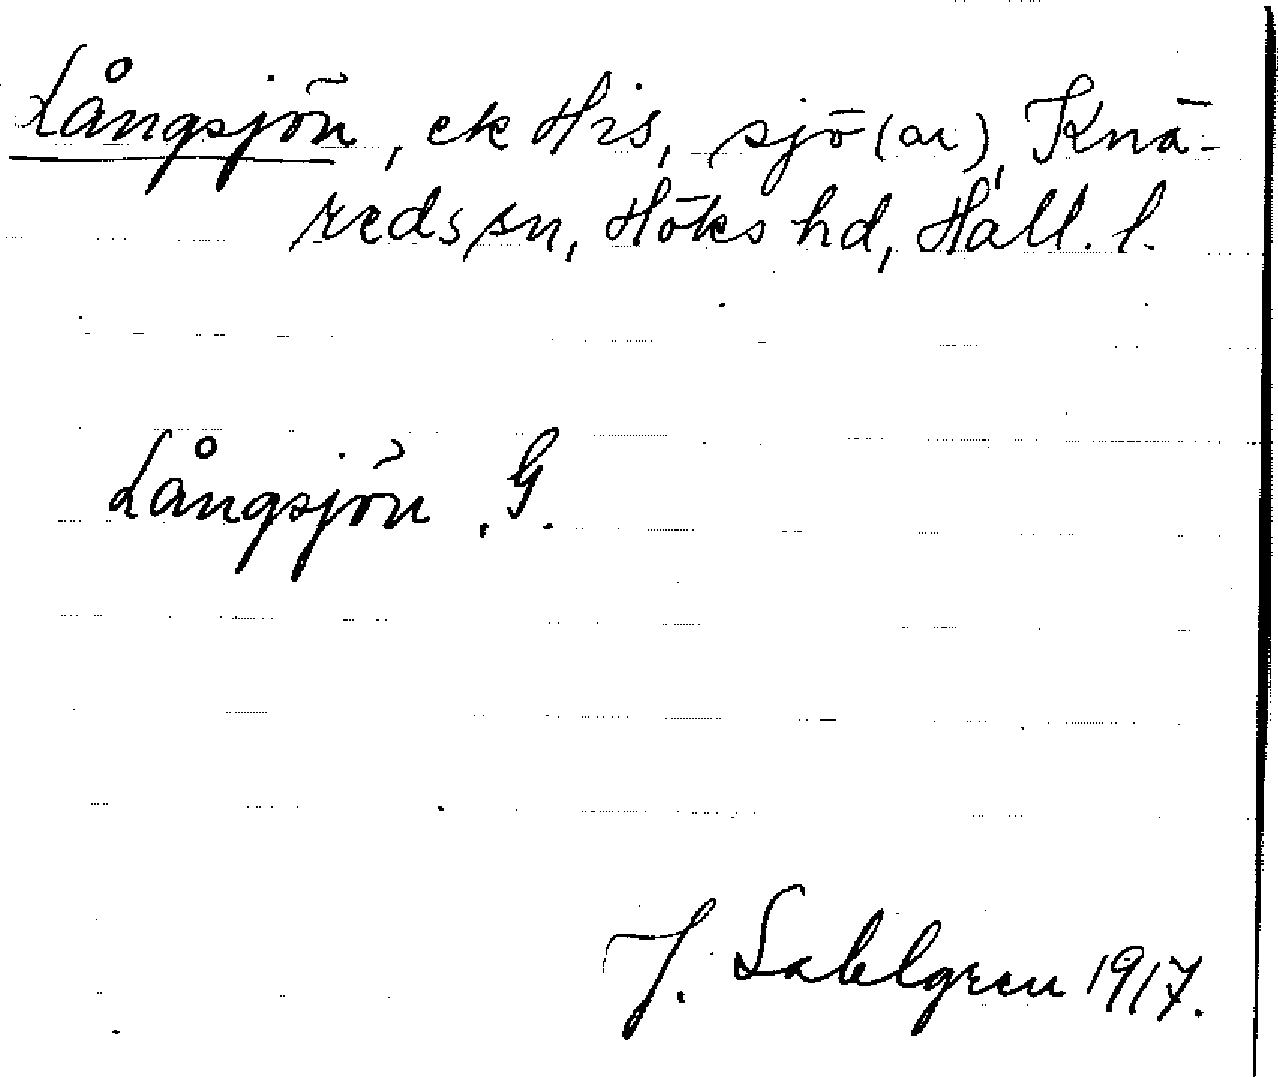 Långsjön, ek His, sjö(ar), Knä-
reds sn, Höks hd, Hall. l.
Långsjön, G.
J. Sahlgren 1917.